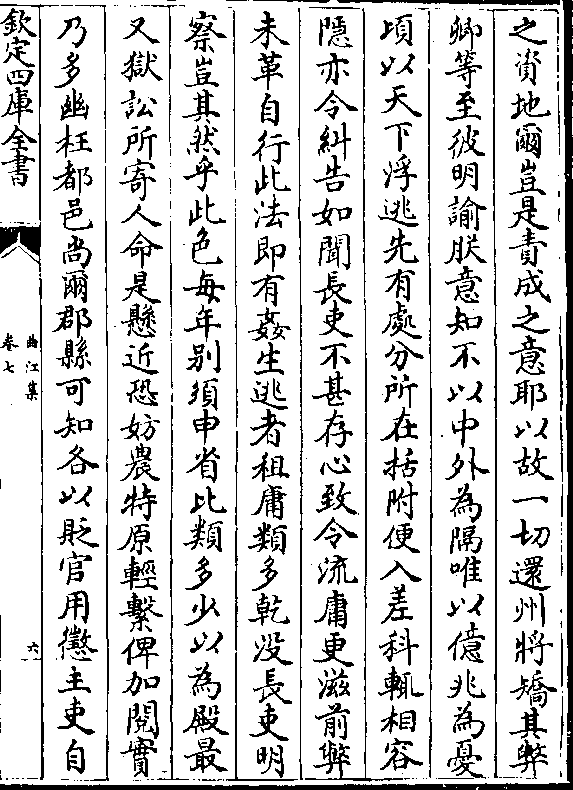 之資地爾豈是責成之意耶以故一切還州將矯其弊
卿等至彼明諭朕意知不以中外為隔唯以億兆為憂
頃以天下浮逃先有處分所在括附便入差科輒相容
隱亦令糾告如聞長吏不甚存心致令流庸更滋前弊
未革自行此法即有姦生逃者租庸類多乾没長吏明
察豈其然乎此色每年别須申省比類多少以為殿最
又獄訟所寄人命是懸近恐妨農特原輕繫俾加閱實
乃多幽枉都邑尚爾郡縣可知各以貶官用懲主吏自
欽定四庫全書
曲江集
卷七
六